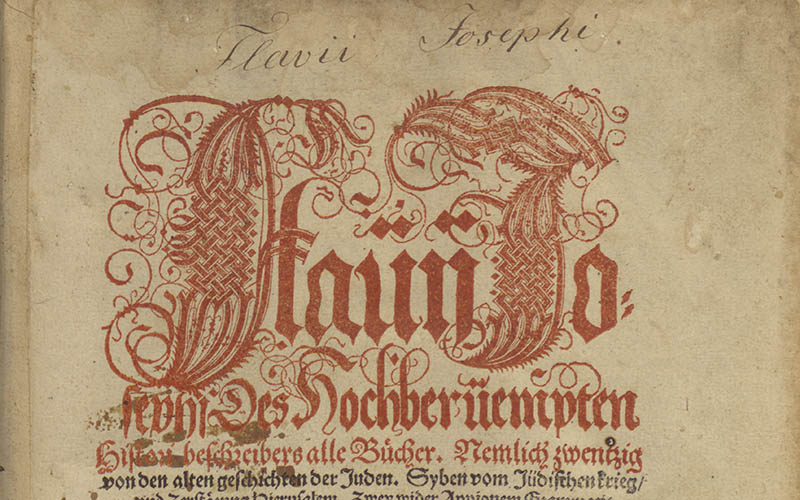 Flavii Josephi
Flauii Jo=
sephi Des Hochberüempten
Histori beschreibers alle Bücher. Nemlich zwentzig
von den alten geschichten der Juden. Syben vom Jüdischen krieg/
und Zerstörung Hierusalem. Zwey wider Appionem